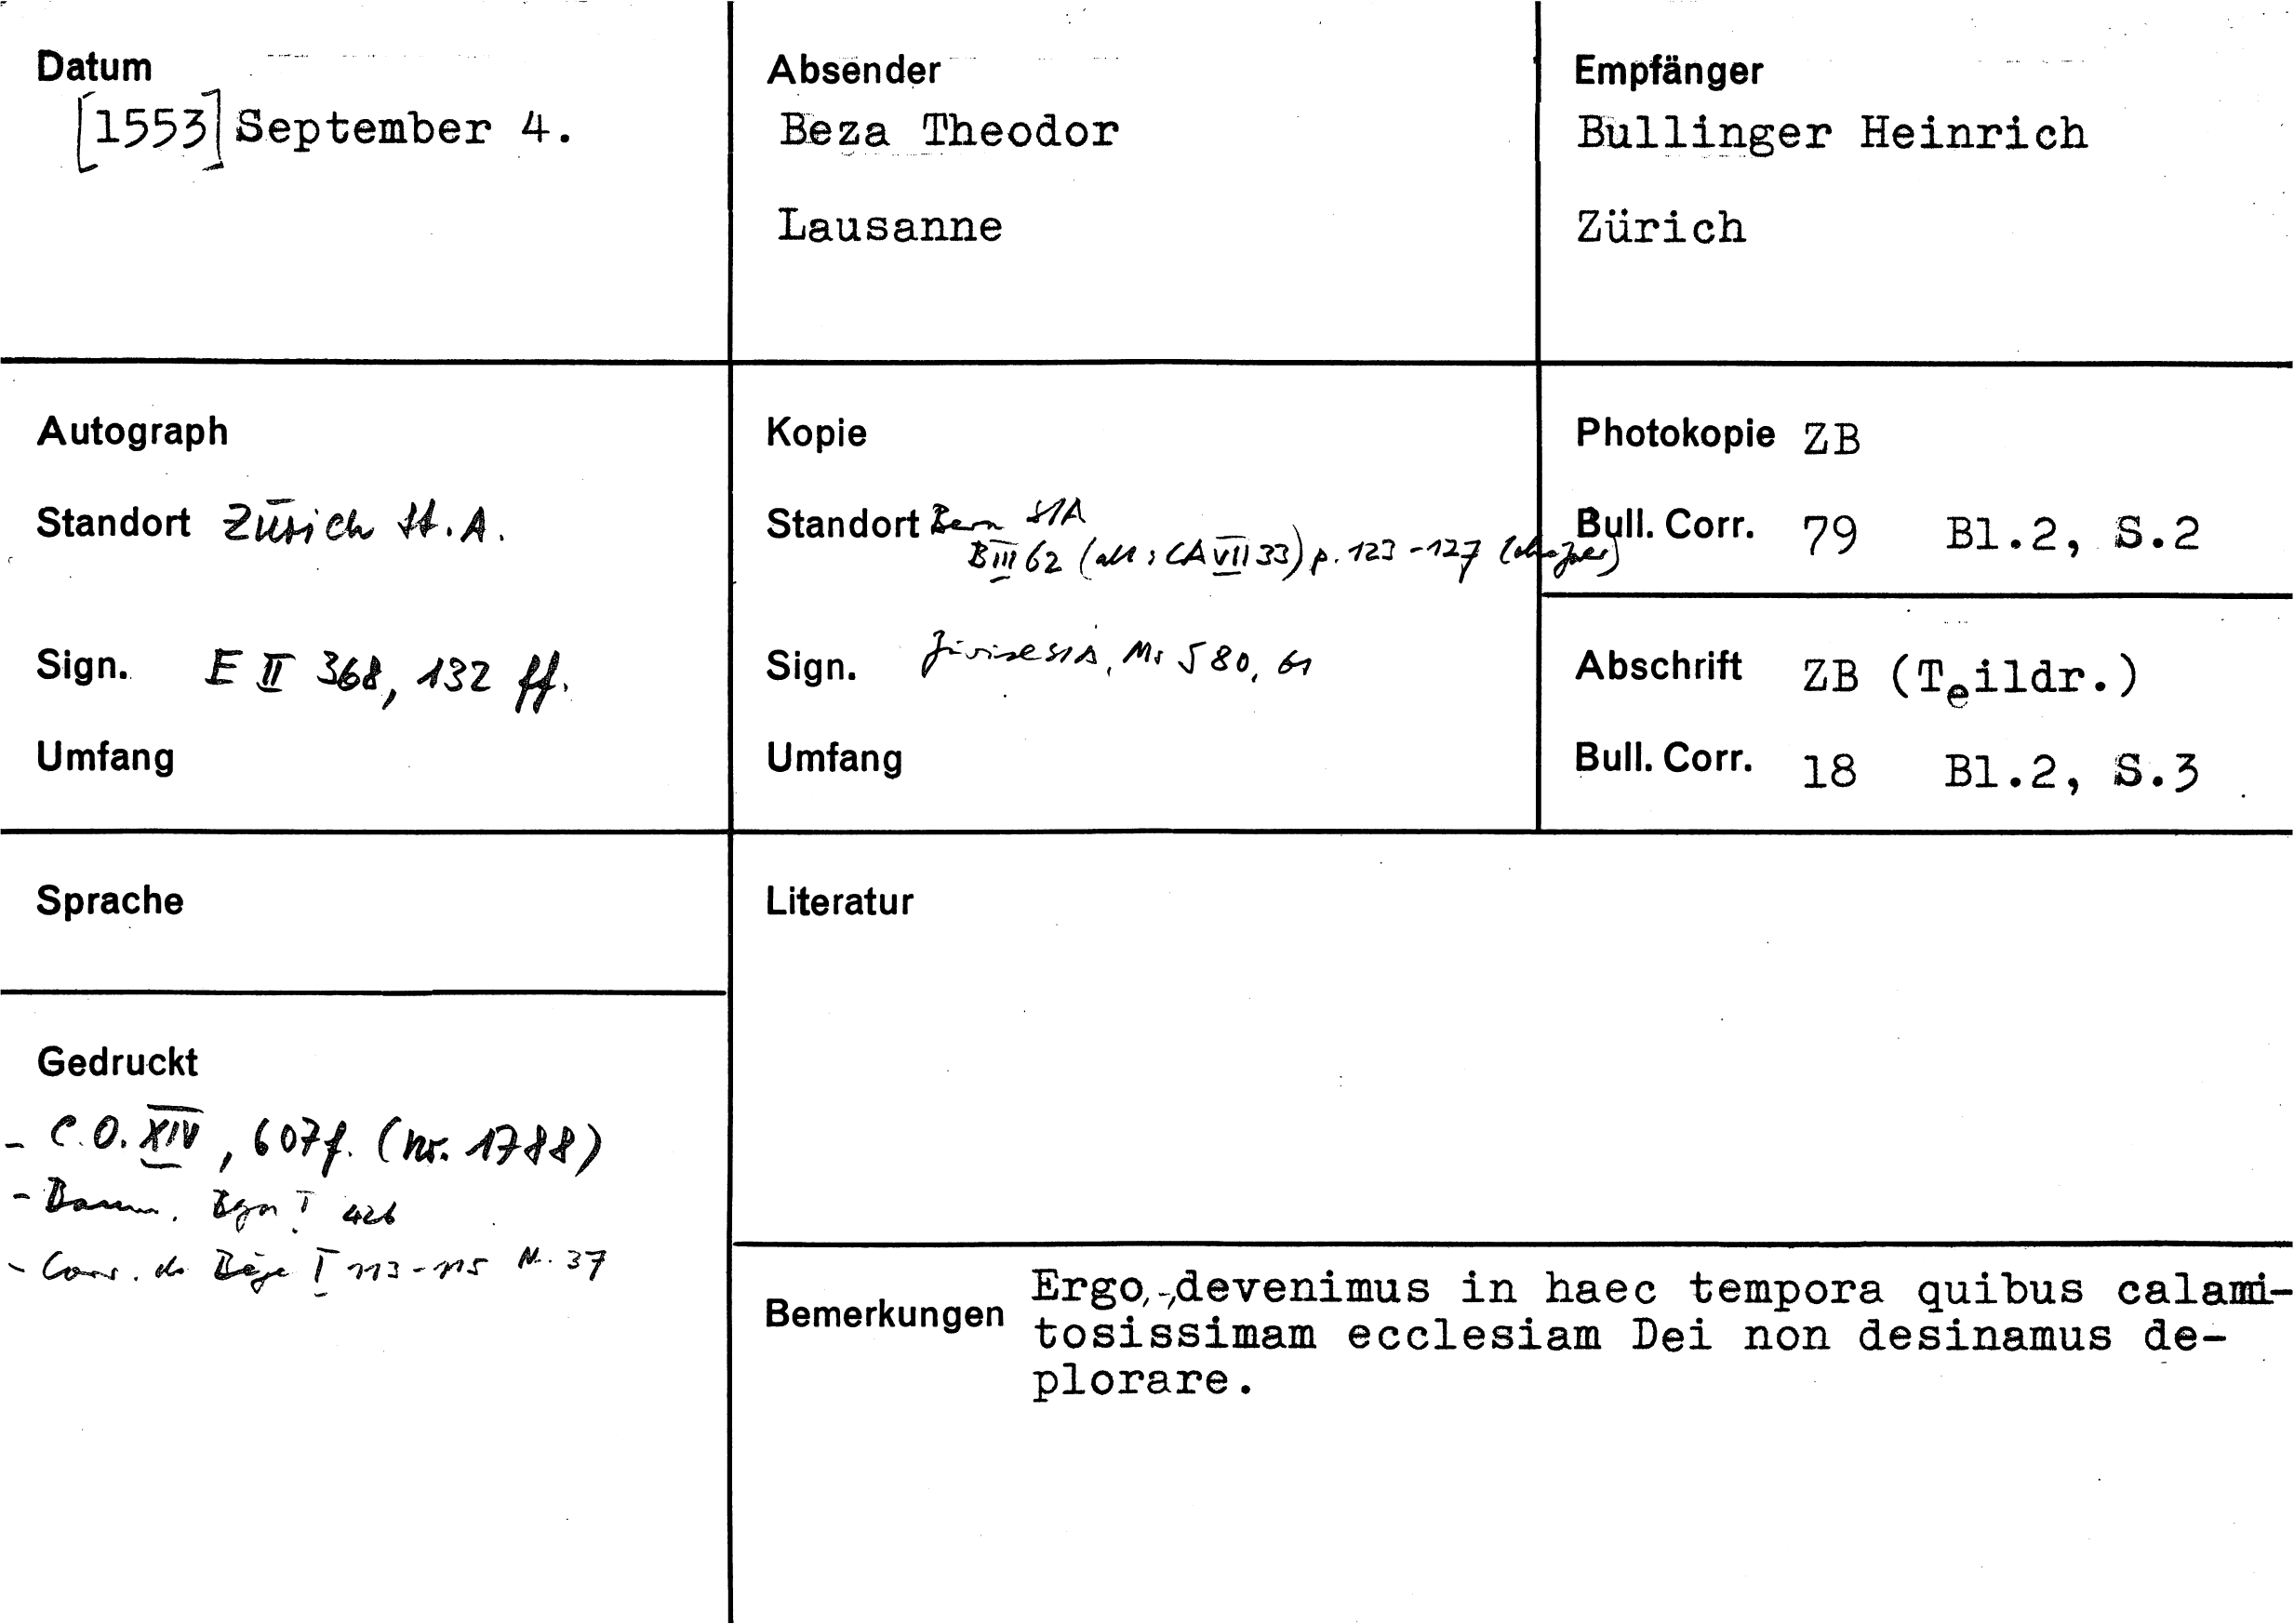 Datum
[1553] September 4.
Absender
Beza Theodor
Lausanne
Empfänger
Bullinger Heinrich
Zürich
Autograph
Standort Zürich St.A.
Sign. E II 368, 132 ff.
Umfang
Kopie
Standort Bern StA
B III 62 (alt: CA VII 33) p. 123-127
Sign. Zürich StA, Ms S 80, 61
Umfang
Photokopie ZB
Bull. Corr. 79 Bl.2, S.2
Abschrift ZB (Teildr.)
Bull. Corr. 18 Bl.2, S.3
Sprache
Gedruckt
- C.O. XIV, 607f. (Nr. 1788)
- Baum, I 426
- Corr. de Bèze I 113-115 N. 37
Literatur
Bemerkungen
Ergo, devenimus in haec tempora quibus calami-
tosissimam ecclesiam Dei non desinamus de-
plorare.